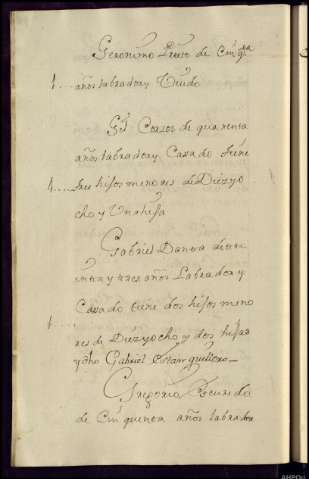 Geronimo Prieto de Cinq.ta
1.... años labrador y Viudo
Gil Cossos de quarenta
años labrador y Casado tiene
1.... tres hijos menores de Diezyo
cho y Una hija
Gabriel Danta de tre
inta y tres años Labrador y
Casado tiene dos hijos meno
1....
res de Diezyocho y dos hijas
y dho Gabriel
Gregorio Escurido
de Cinquenta años labrador
AHPOU